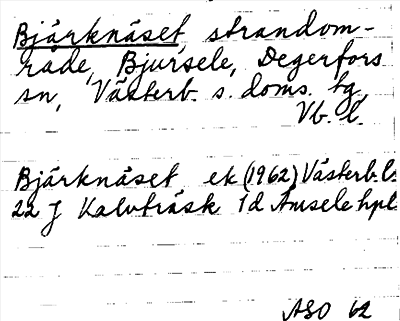 Bjärknäset, strandom-
råde, Bjursele, Degerfors
sn, Västerb. s. doms. tg,
Vb. l.
Bjärknäset ek (1962) Västerb. l.
22 J Kalvträsk 1 d Åmsele hpl
ASO 62